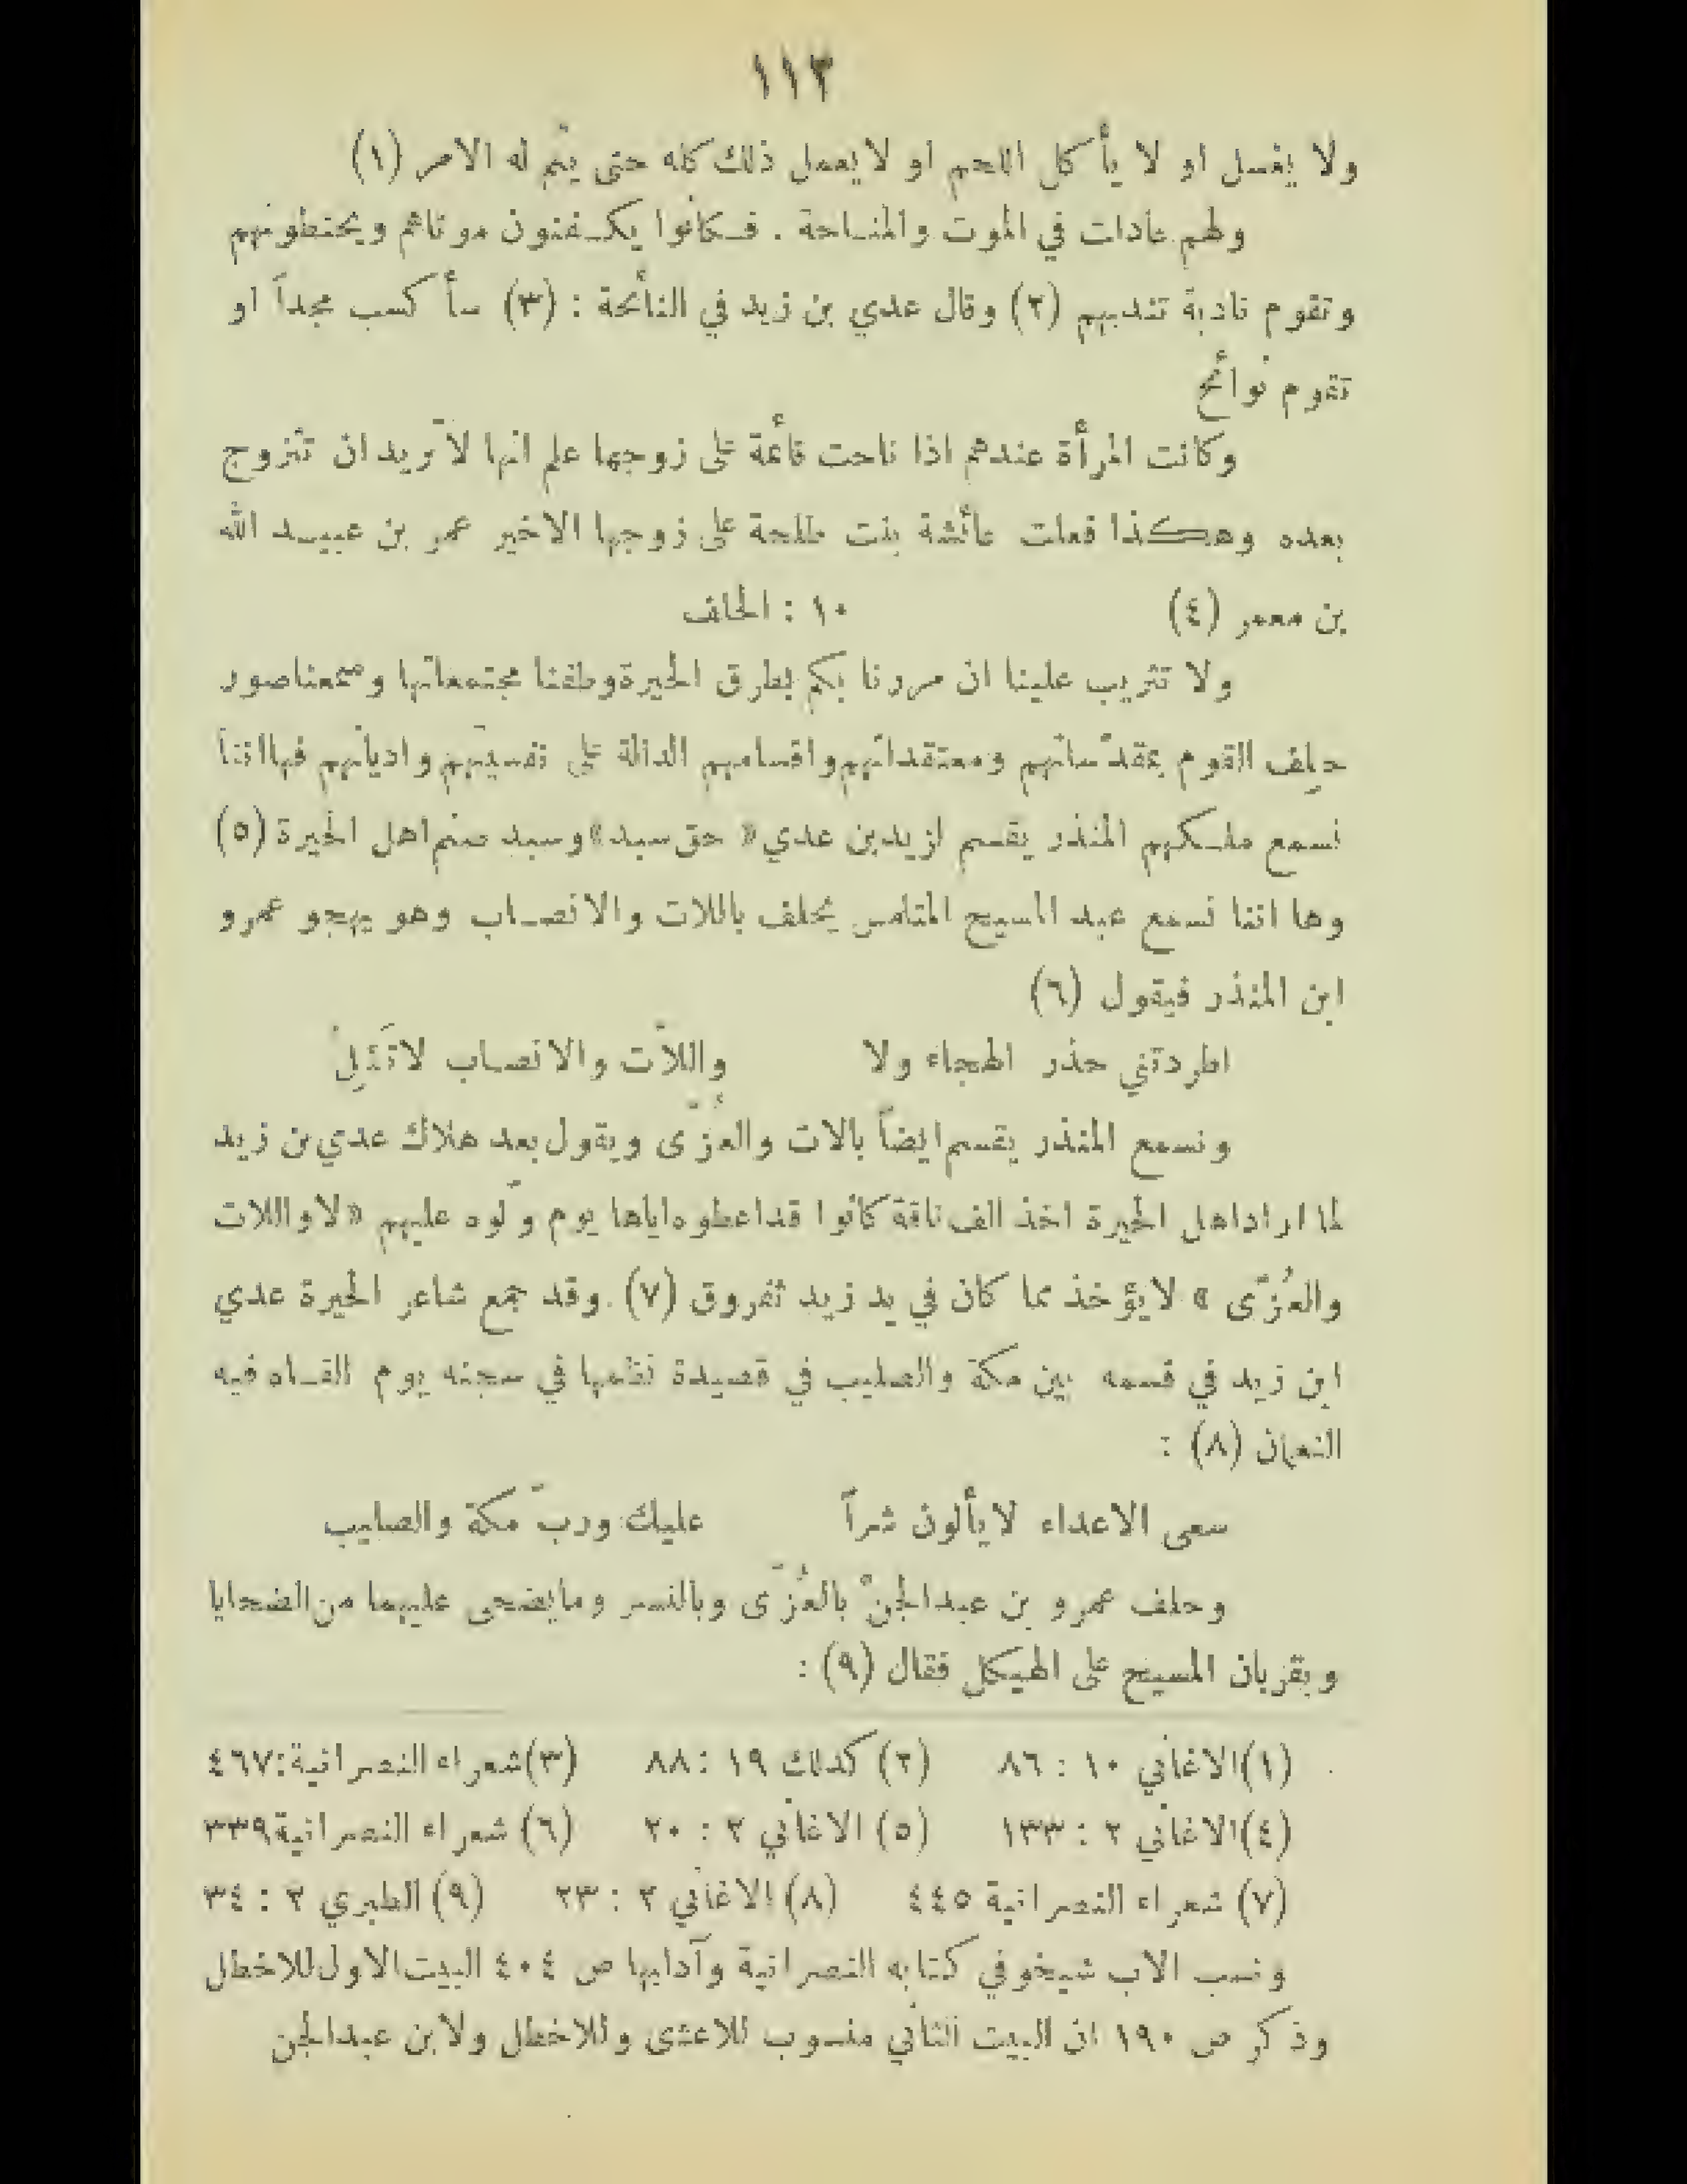 ١١٣
ولا يغسل او لا يأكل اللحم او لا يعمل ذلك كله حتى يتم له الامر (١)
ولهم عادات في الموت والمناحة . فكانوا يكفنون موتاهم ويحنطونهم
وتقوم نادبة تندبهم (٢) وقال عدي بن زيد في النائحة : (٣) سأكسب مجداً او
تقوم نوائح
وكانت المرأة عندهم اذا ناحت قائمة على زوجها علم انها لا تريد ان تتزوج
بعده وهكذا فعلت عائشة بنت طلحة على زوجها الاخير عمر بن عبيد الله
بن معمر (٤)
١٠ : الحلف
ولا تثريب علينا ان مررنا بكم بطرق الحيرة وطفنا مجتمعاتها وسمعنا صور
حلف القوم بمقدساتهم ومعتقداتهم واقسامهم الدالة على نفسيتهم واديانهم فها اننا
نسمع ملكهم المنذر يقسم لزيد بن عدي « حق سبد » وسبد صنم اهل الحيرة (٥)
وها اننا نسمع عبد المسيح المتلمس يحلف باللات والانصاب وهو يهجو عمرو
ابن المنذر فيقول (٦)
اطردتني حذر الهجاء ولا واللات والانصاب لا تَئِلُ
ونسمع المنذر يقسم ايضاً بالات والعُزّى ويقول بعد هلاك عدي بن زيد
لما اراد اهل الحيرة اخذ الف ناقة كانوا قد اعطوه اياها يوم ولّوه عليهم « لا واللات
والعُزّى » لا يؤخذ مما كان في يد زيد ثفروق (٧) . وقد جمع شاعر الحيرة عدي
ابن زيد في قسمه بين مكة والصليب في قصيدة نظمها في سجنه يوم القاه فيه
النعمان (٨) :
سعى الاعداء لا يألون شراً عليك وربّ مكة والصليب
وحلف عمرو بن عبد الجن بالعُزّى وبالنسر وما يضحى عليهما من الضحايا
وبقربان المسيح على الهيكل فقال (٩) :
(١) الاغاني ١٠ : ٨٦ (٢) كذلك ١٩ : ٨٨ (٣) شعراء النصرانية : ٤٦٧
(٤) الاغاني ٢ : ١٣٣ (٥) الاغاني ٢ : ٢٠ (٦) شعراء النصرانية ٣٣٩
(٧) شعراء النصرانية ٤٤٥ (٨) الاغاني ٢ : ٢٣ (٩) الطبري ٢ : ٣٤
ونسب الاب شيخو في كتابه النصرانية وآدابها ص ٤٠٤ البيت الاول للاخطل
وذكر ص ١٩٠ ان البيت الثاني منسوب للاعشى وللاخطل ولابن عبد الجن